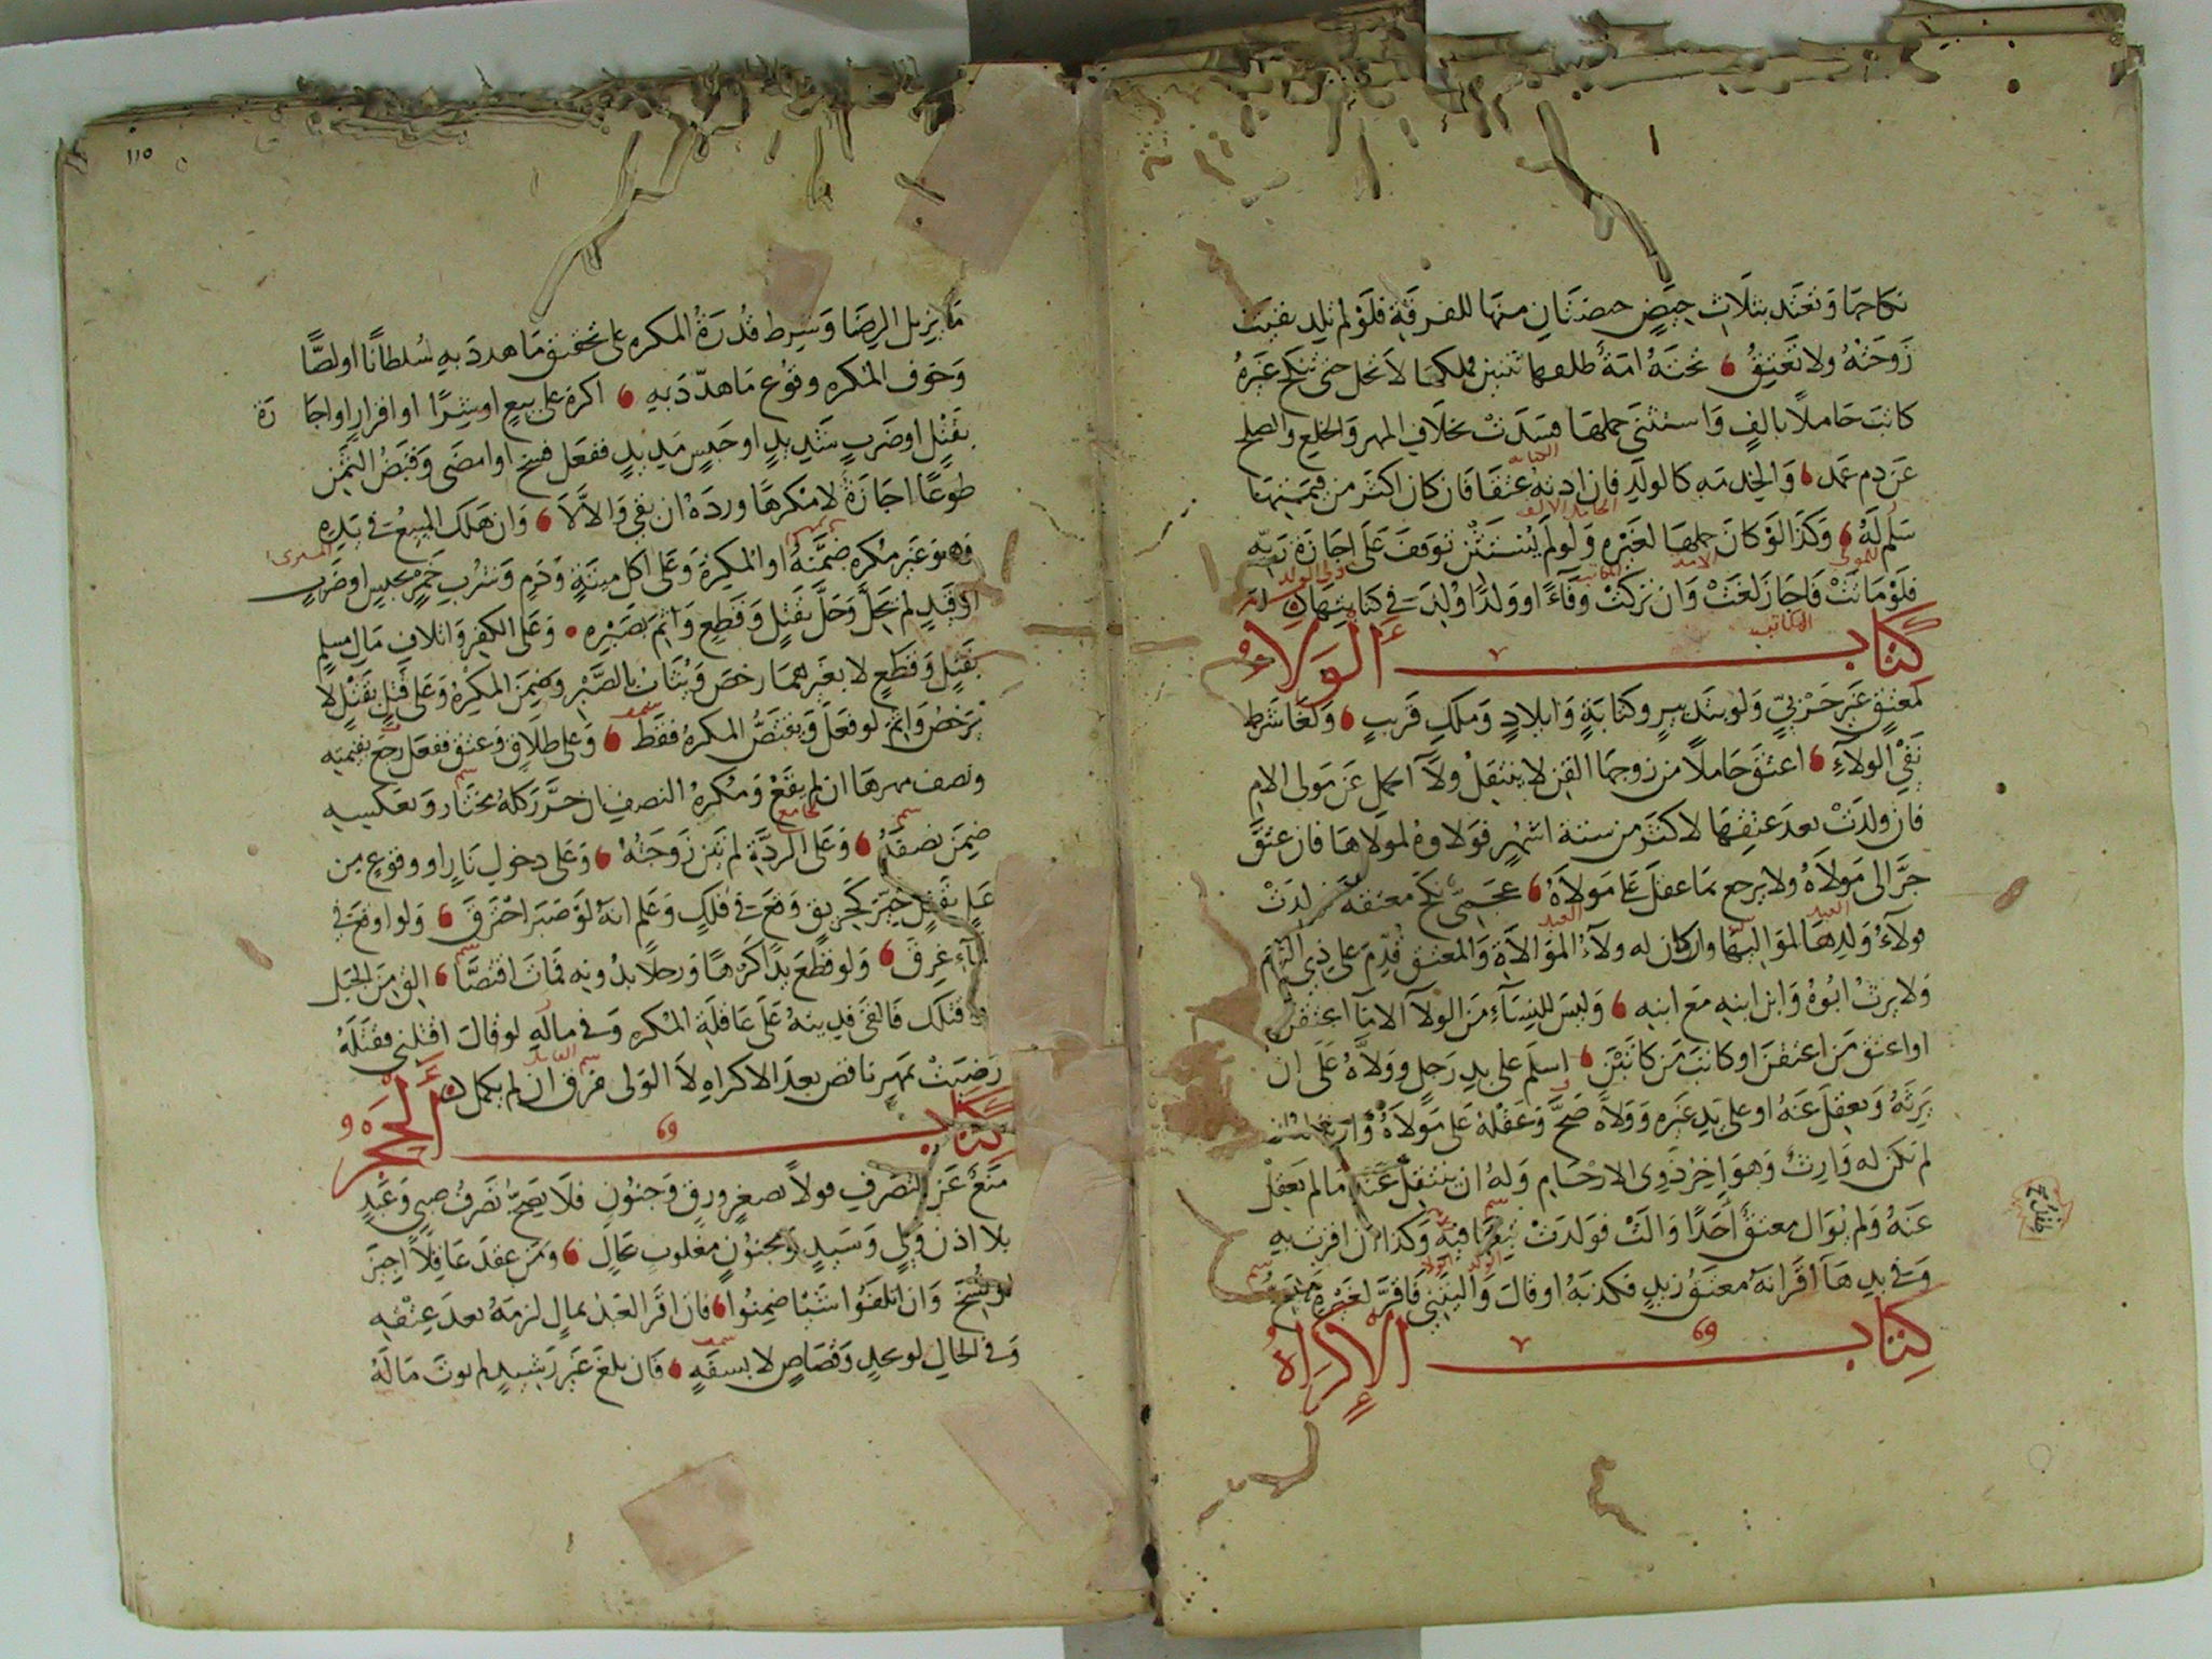 نكاحها وتعتد بثلاث حيض حيضتان منها للفرقة فلو لم تلد بقيت
زوجته ولا تعتق تحته امة طلقها ثنتين فملكها لا تحل حتى تنكح غيره
كاتب حاملا بالف واستثنى حملها فسدت بخلاف المهر والخلع والصلح
عن دم عمد والخدمة كالولد فان ادته عتقا فان كان اكثر من قيمتها
سلم له وكذا لو كان حملها لغيره ولو لم يستثن توقف على اجازة ربه
فلو ماتت فاجاز لغت وان تركت وفاء او ولدا ولد في كتابتها
كتاب الولاء
لمعتق غير حربي ولو بتدبير وكتابة وايلاد وملك قريب ولغا شرط
نفي الولاء اعتق حاملا من زوجها القن لا ينتقل ولاء الحمل عن مولى الام
فان ولدت بعد عتقها لاكثر من ستة اشهر فولاوه لمولاها فان عتق
جر الى مولاه ولا يرجع بما عقل على مولاه عجمي نكح معتقة فولدت
فولاء ولدها لمواليها وان كان له ولاء الموالاة والمعتق قدم على ذي الرحم
ولا يرث ابوه وابن ابنه مع ابنه وليس للنساء من الولاء الا ما اعتقن
او اعتق من اعتقن او كاتب من كاتبن اسلم على يد رجل وولاه على ان
يرثه ويعقل عنه او على يد غيره وولاه صح وعقله على مولاه وارثه ان
لم تكن له وارث وهو اخر ذوي الارحام وله ان ينتقل عنه ما لم يعقل
عنه ولم يوال معتق احدا والت فولدت تبعها فيه وكذا ان اقرت به
وفي يدها اقر انه معتق زيد فكذبه او قال واليتني فاقر لغيره
كتاب الاكراه
١١٥
ما يزيل الرضا وشرط قدرة المكره على تحقيق ما هدد به سلطانا او لصا
وخوف المكره وقوع ما هدد به اكره على بيع او شرا او اقرار او اجارة
بقتل او ضرب شديد او حبس مديد ففعل فسخ او امضى وقبض الثمن
طوعا اجازة لا مكرها ورده ان بقي والا لا وان هلك المبيع في يده
وهو غير مكره ضمنه او المكره وعلى اكل ميتة ودم وشرب خمر بحبس او ضرب
او قيد لم يحل وحل بقتل وقطع واثم بصبره وعلى الكفر واتلاف مال مسلم
بقتل وقطع لا بغيرهما رخص ويثاب بالصبر وضمن المكره وعلى قتل بقتل لا
يرخص واثم لو فعل ويقتص المكره فقط وعلى طلاق وعتق ففعل رجع بقيمته
ونصف مهرها ان لم يقع ومكره النصف ان حرر كله مختار وبعكسه
ضمن نصفه وعلى الردة لم تبن زوجته وعلى دخول نار او وقوع من
عل بقتل خير كحريق وقع في فلك وعلم انه لو صبر احترق ولو اوقع في
الماء غرق ولو قطع يدا كرها ورجلا بدونه فمات اقتصا الق من الجبل
والا قتلتك فالقى فديته على عاقلة المكره وفي ماله لو قال اقتلني فقتله
رضيت بمهر ناقص بعد الاكراه لا الولى فرق ان لم يكمل
كتاب الحجر
منع عن التصرف قولا بصغر ورق وجنون فلا يصح تصرف صبي وعبد
بلا اذن ولي وسيد ومجنون مغلوب بحال ومن عقد عاقلا اجيز
او فسخ وان اتلفوا شيئا ضمنوا فان اقر العبد بمال لزمه بعد عتقه
وفي الحال لو بحد وقصاص لا بسفه فان بلغ غير رشيد لم يوت ماله